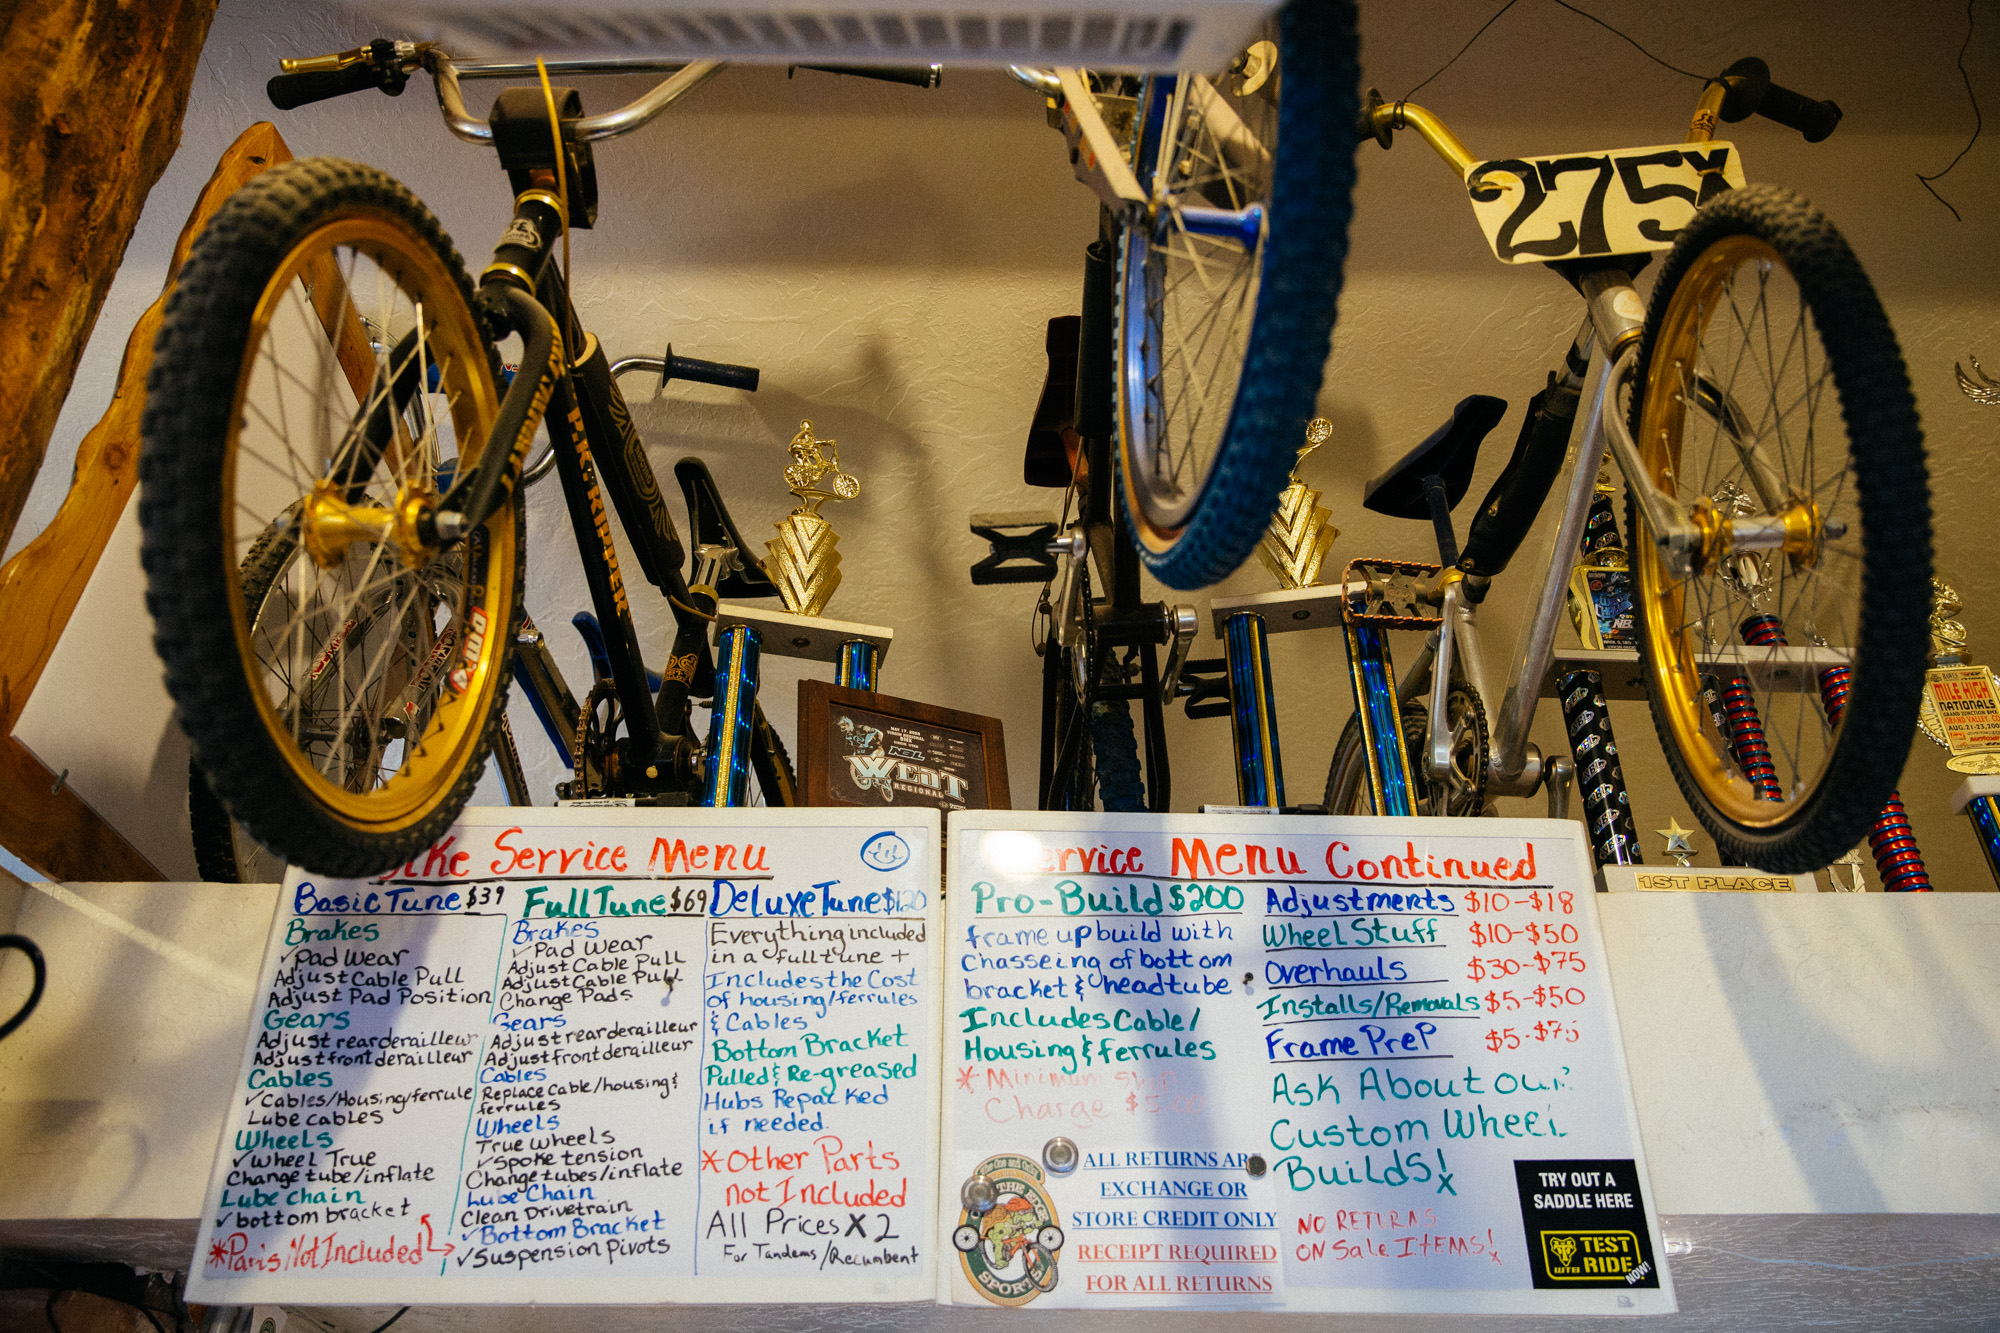 275x
P.K. RIPPER
MAY 17, 2008
NBL
WEST
REGIONAL
MILE HIGH
NATIONALS
1ST PLACE
Service Menu
Basic Tune $39
Brakes
✓Pad Wear
Adjust Cable Pull
Adjust Pad Position
Gears
Adjust rear derailleur
Adjust front derailleur
Cables
✓Cables/Housing/ferrule
Lube cables
Wheels
✓Wheel True
Change tube/inflate
Lube chain
✓bottom bracket
*Parts Not Included
Full Tune $69
Brakes
✓Pad Wear
Adjust Cable Pull
Adjust Cable Pull
Change Pads
Gears
Adjust rear derailleur
Adjust front derailleur
Cables
Replace Cable/housing &
ferrules
Wheels
True wheels
✓Spoke tension
Change tubes/inflate
Lube Chain
Clean Drivetrain
✓Bottom Bracket
✓Suspension Pivots
Deluxe Tune $120
Everything included
in a full tune +
Includes the Cost
of housing/ferrules
& Cables
Bottom Bracket
Pulled & Re-greased
Hubs Repacked
if needed.
*Other Parts
not Included
All Prices X 2
For Tandems/Recumbent
Service Menu Continued
Pro-Build $200
frame up build with
chasseing of bottom
bracket & headtube
Includes Cable/
Housing & ferrules
*Minimum
Charge $5
Adjustments $10-$18
Wheel Stuff $10-$50
Overhauls $30-$75
Installs/Removals $5-$50
Frame Prep $5-$75
Ask About our
Custom Wheel
Builds!
NO RETURNS
ON Sale ITEMS!
ALL RETURNS ARE
EXCHANGE OR
STORE CREDIT ONLY
RECEIPT REQUIRED
FOR ALL RETURNS
THE EDGE
SPORTS
TRY OUT A
SADDLE HERE
WTB
TEST
RIDE
NOW!